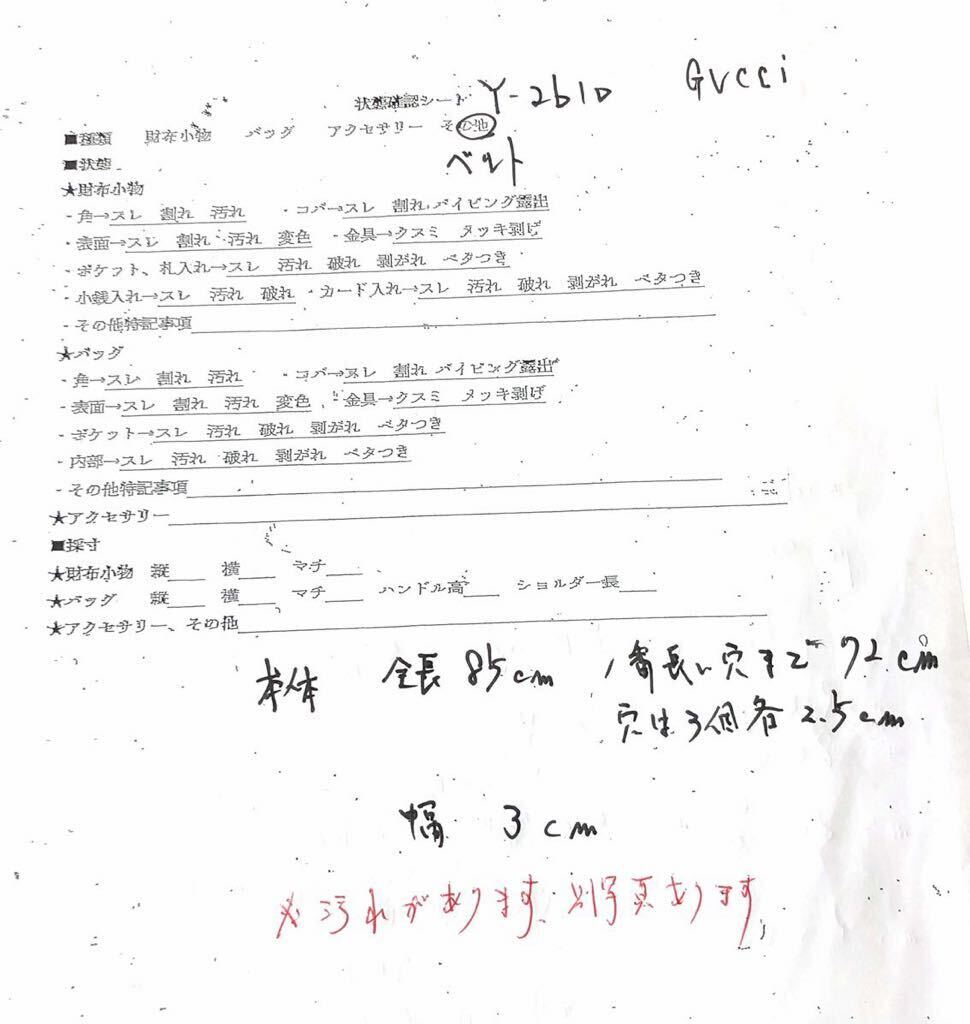 状態確認シート Y-2610 GUCCI
■種類 財布小物 バッグ アクセサリー その他
ベルト
■状態
★財布小物
・角→スレ 割れ 汚れ ・コバ→スレ 割れ パイピング露出
・表面→スレ 割れ 汚れ 変色 ・金具→クスミ メッキ剥げ
・ポケット、札入れ→スレ 汚れ 破れ 剥がれ ベタつき
・小銭入れ→スレ 汚れ 破れ ・カード入れ→スレ 汚れ 破れ 剥がれ ベタつき
・その他特記事項
★バッグ
・角→スレ 割れ 汚れ ・コバ→スレ 割れ パイピング露出
・表面→スレ 割れ 汚れ 変色 ・金具→クスミ メッキ剥げ
・ポケット→スレ 汚れ 破れ 剥がれ ベタつき
・内部→スレ 汚れ 破れ 剥がれ ベタつき
・その他特記事項
★アクセサリー
■採寸
★財布小物 縦 横 マチ
★バッグ 縦 横 マチ ハンドル高 ショルダー長
★アクセサリー、その他
本体 全長 85cm 1番長い穴まで 72cm
穴は3個各 2.5cm
幅 3cm
※汚れがあります。別写真あります。